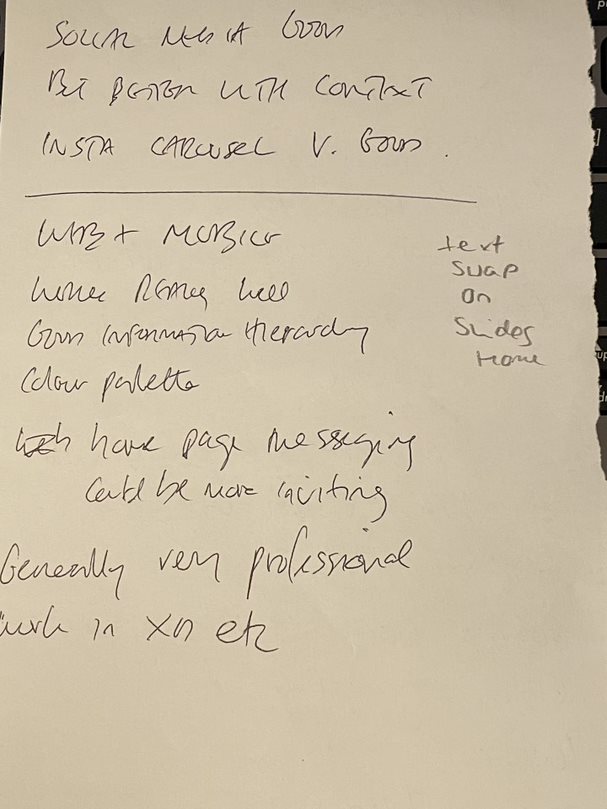 SOCIAL MEDIA GOOD
BUT BETTER WITH CONTEXT
INSTA CAROUSEL V. GOOD.
WEB + MOBILE
works REALLY well
GOOD INFORMATION Hierarchy
Colour palette
home page messaging
Could be more inviting
Generally very professional
work in XD etc
text
swap
on
Slides
Home